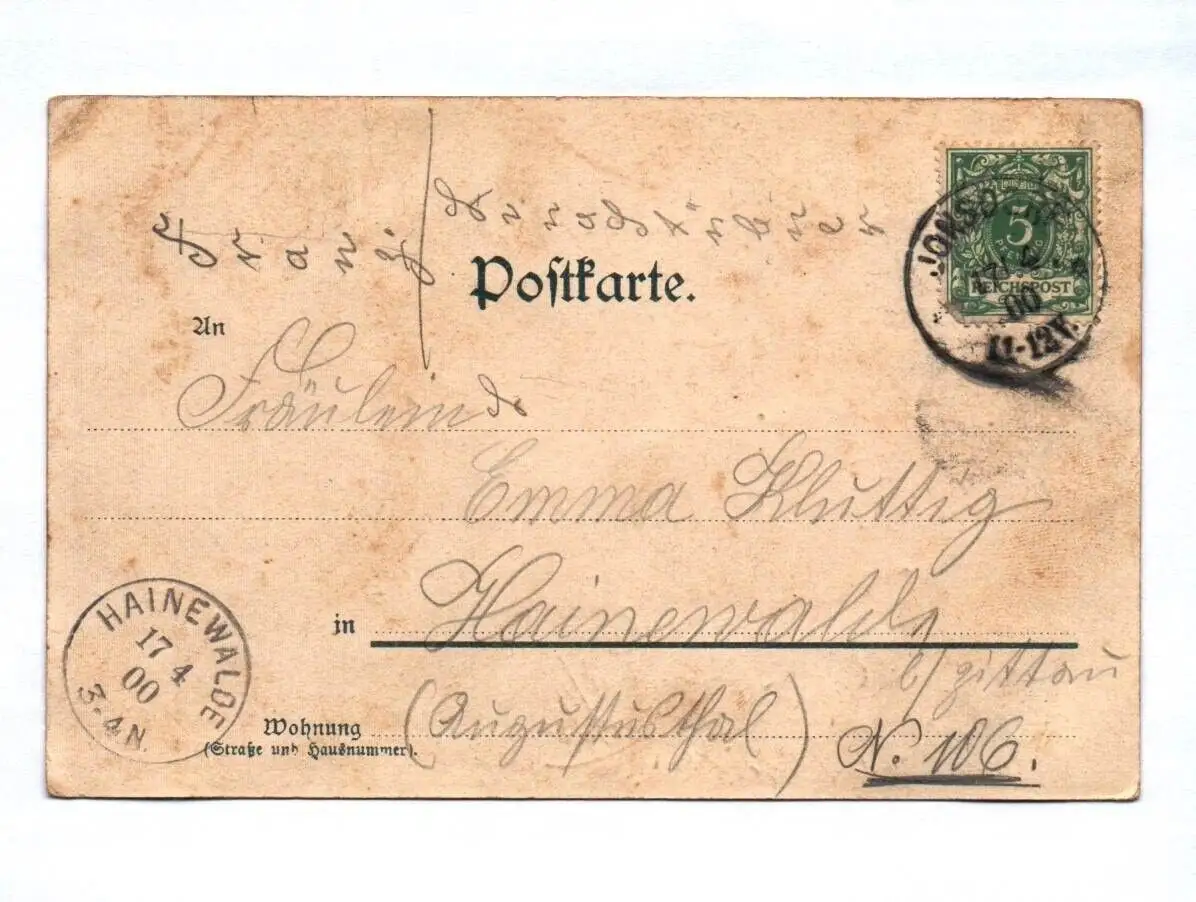 Franz
Postkarte.
JONSD
5
PFENNIG
REICHSPOST
17 4
00
11-12V.
An
Fräulein
Emma Kluttig
in Hainewalde
b/ Zittau
HAINEWALDE
17 4
00
3-4N.
Wohnung (Augustusthal) N. 106.
(Straße und Hausnummer).